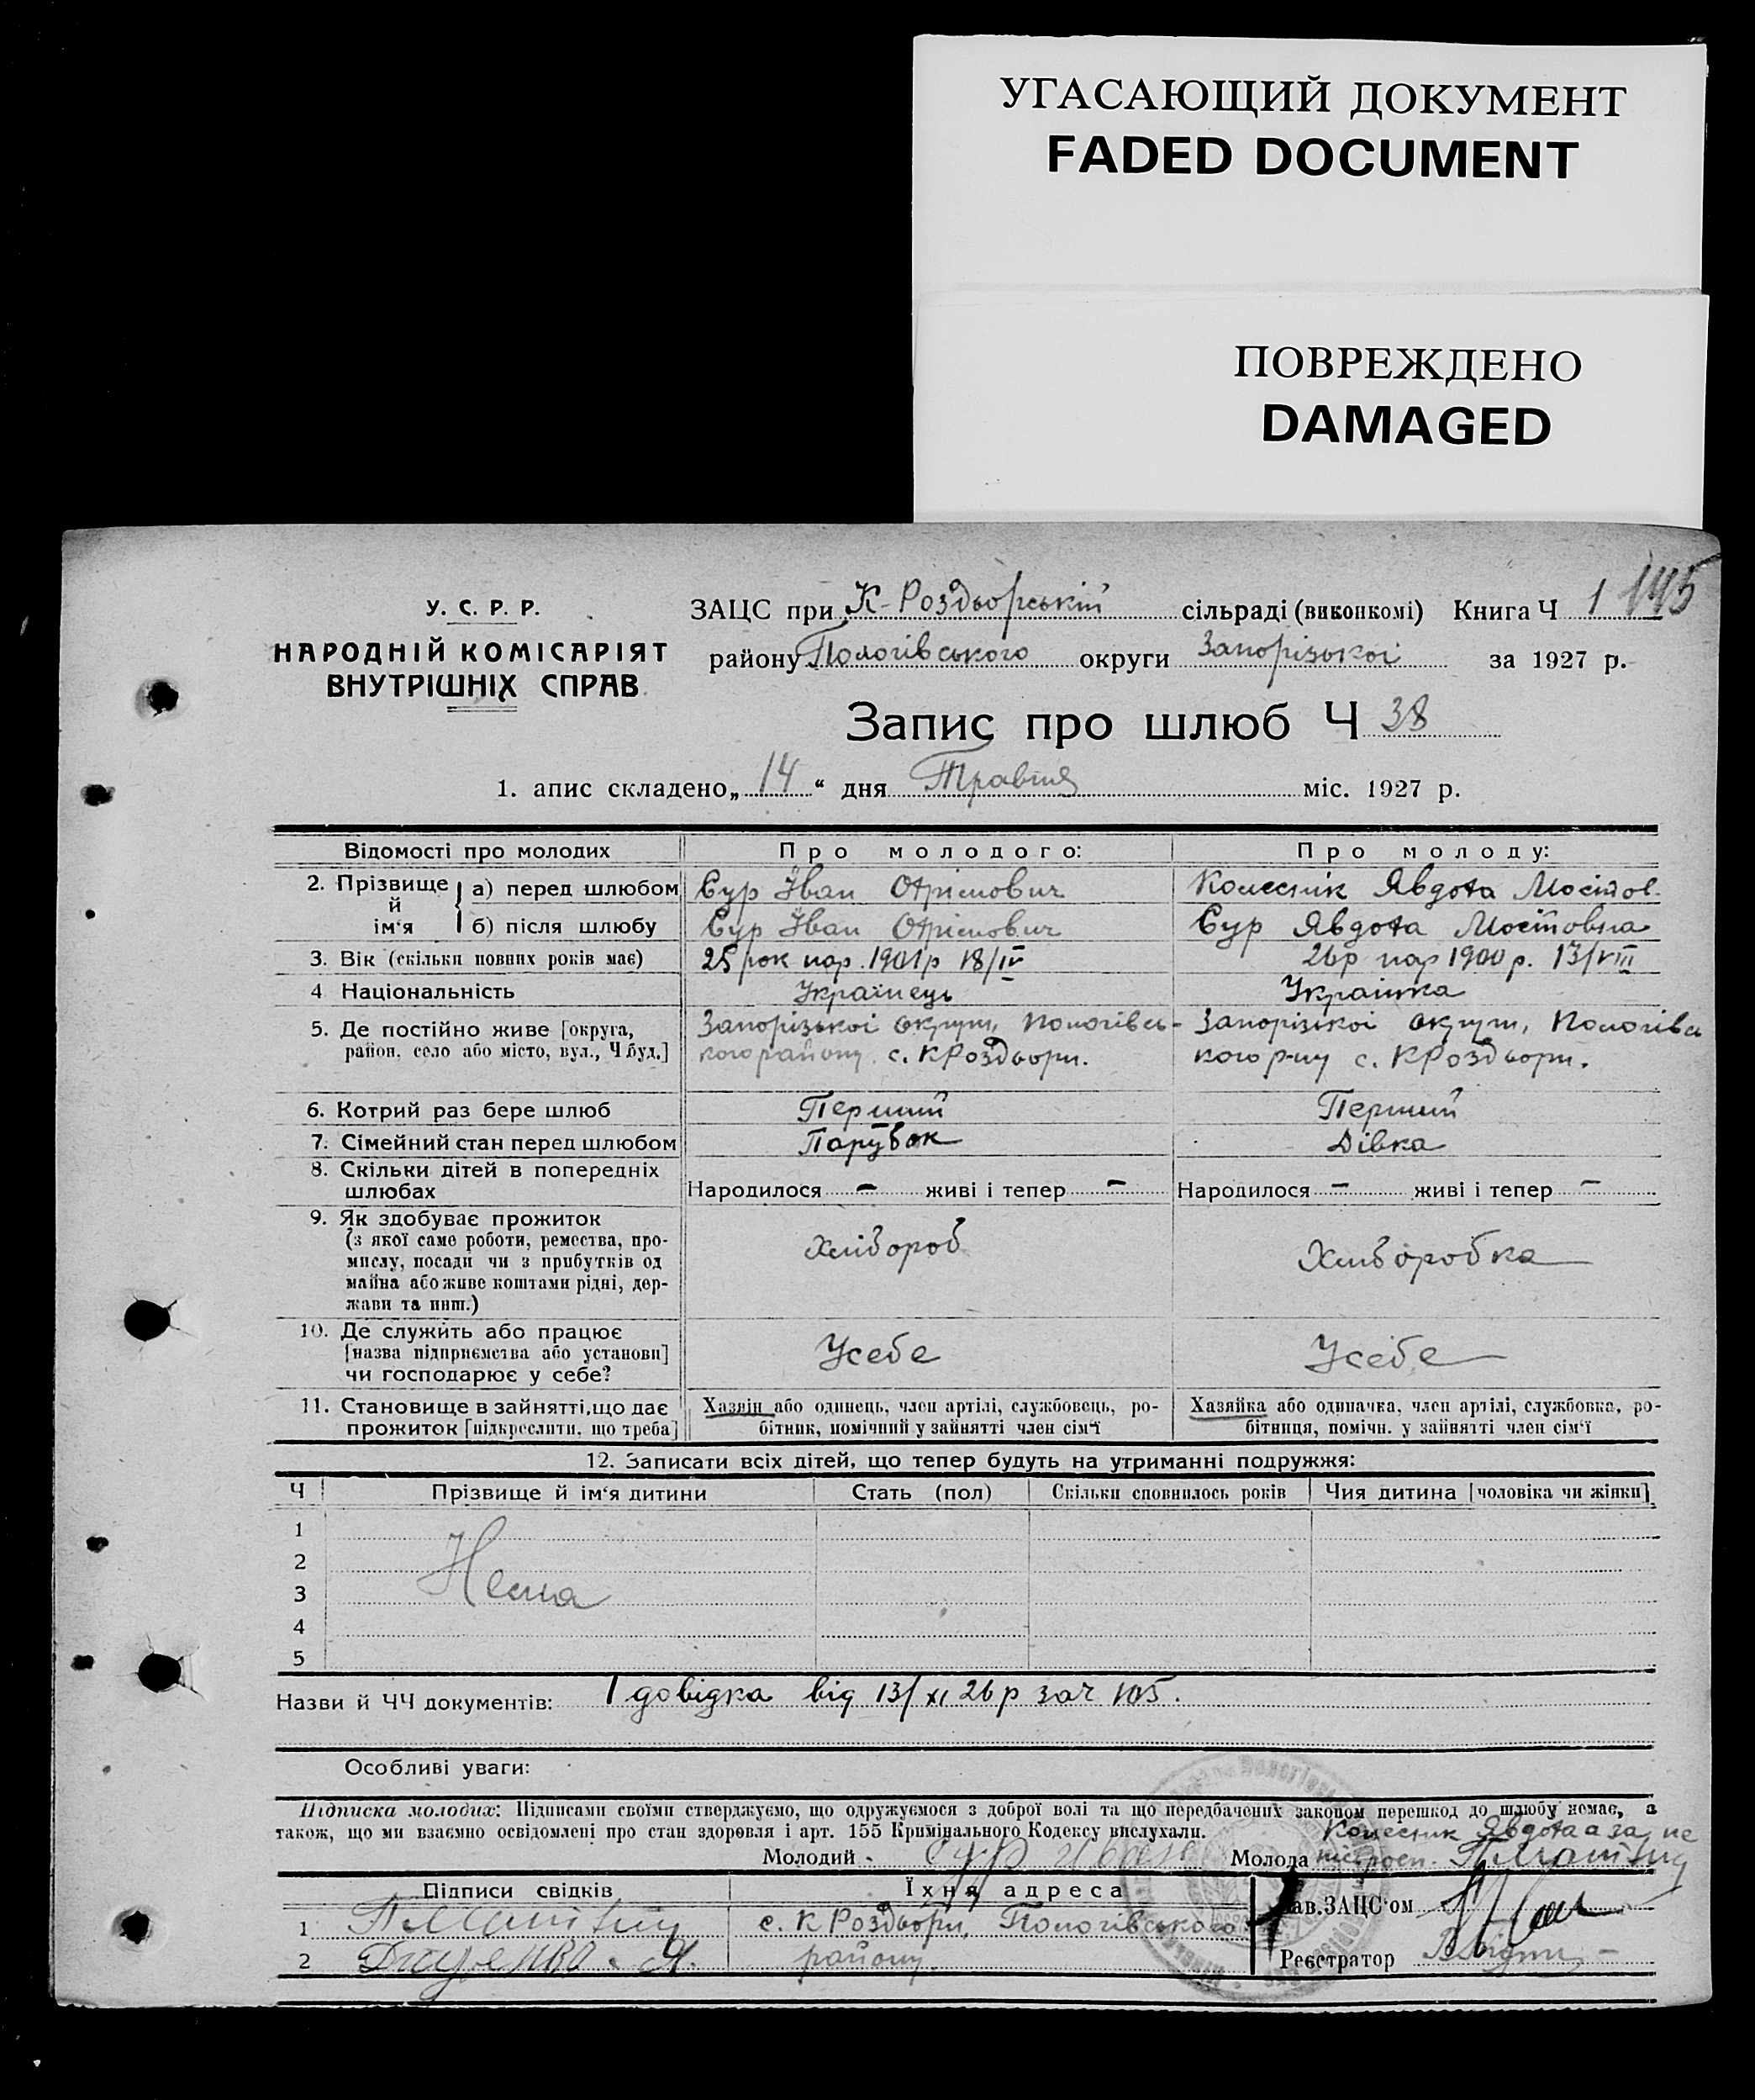 УГАСАЮЩИЙ ДОКУМЕНТ
FADED DOCUMENT
ПОВРЕЖДЕНО
DAMAGED
145
У. С. Р. Р.
НАРОДНІЙ КОМІСАРІЯТ
ВНУТРІШНІХ СПРАВ
ЗАЦС при К-Роздорській сільраді (виконкомі) Книга Ч 1
району Пологівського округи Запорізької за 1927 р.
Запис про шлюб Ч 38
1. апис складено „14“ дня Травня міс. 1927 р.
Відомості про молодих Про молодого: Про молоду:
2. Прізвище й ім‘я
а) перед шлюбом Сур Іван Колесник Явдота
б) після шлюбу Сур Іван Сур Явдота
3. Вік (скільки повних років має) 25 рок нар. 1901р 18/IV 26р нар 1900 р. 13/VIII
4 Національність Українець Українка
5. Де постійно живе [округа, Запорізької округи, Пологівсь- Запорізької округи, Пологівсь
район, село або місто, вул., Ч буд.] кого району с. КРоздори. кого р-ну с. КРоздори.
6. Котрий раз бере шлюб Перший Перший
7. Сімейний стан перед шлюбом Парубок Дівка
8. Скільки дітей в попередніх
шлюбах Народилося – живі і тепер – Народилося – живі і тепер –
9. Як здобуває прожиток
(з якої саме роботи, ремества, про-
мислу, посади чи з прибутків од Хлібороб Хліборобка
майна або живе коштами рідні, дер-
жави та инш.)
10. Де служить або працює
[назва підприємства або установи] Усебе Усебе
чи господарює у себе?
11. Становище в зайнятті, що дає Хазяїн або одинець, член артілі, службовець, ро- Хазяйка або одиначка, член артілі, службовка, ро-
прожиток [підкреслити, що треба] бітник, помічний у зайнятті член сім‘ї бітниця, помічн. у зайнятті член сім‘ї
12. Записати всіх дітей, що тепер будуть на утриманні подружжя:
Ч Прізвище й ім‘я дитини Стать (пол) Скільки сповнилось років Чия дитина [чоловіка чи жінки]
1
2
3 Нема
4
5
Назви й ЧЧ документів: 1 довідка від 13/XI 26р за ч 105.
Особливі уваги:
Підписка молодих: Підписами своїми стверджуємо, що одружуємося з доброї волі та що передбачених законом перешкод до шлюбу немає, а
також, що ми взаємно освідомлені про стан здоровля і арт. 155 Кримінального Кодексу вислухали. Колесник Явдота а за не
Молодий Сур Иван Молода
Підписи свідків Їхня адреса Зав. ЗАЦС‘ом
1 с. КРоздори, Пологівського
2 району. Реєстратор